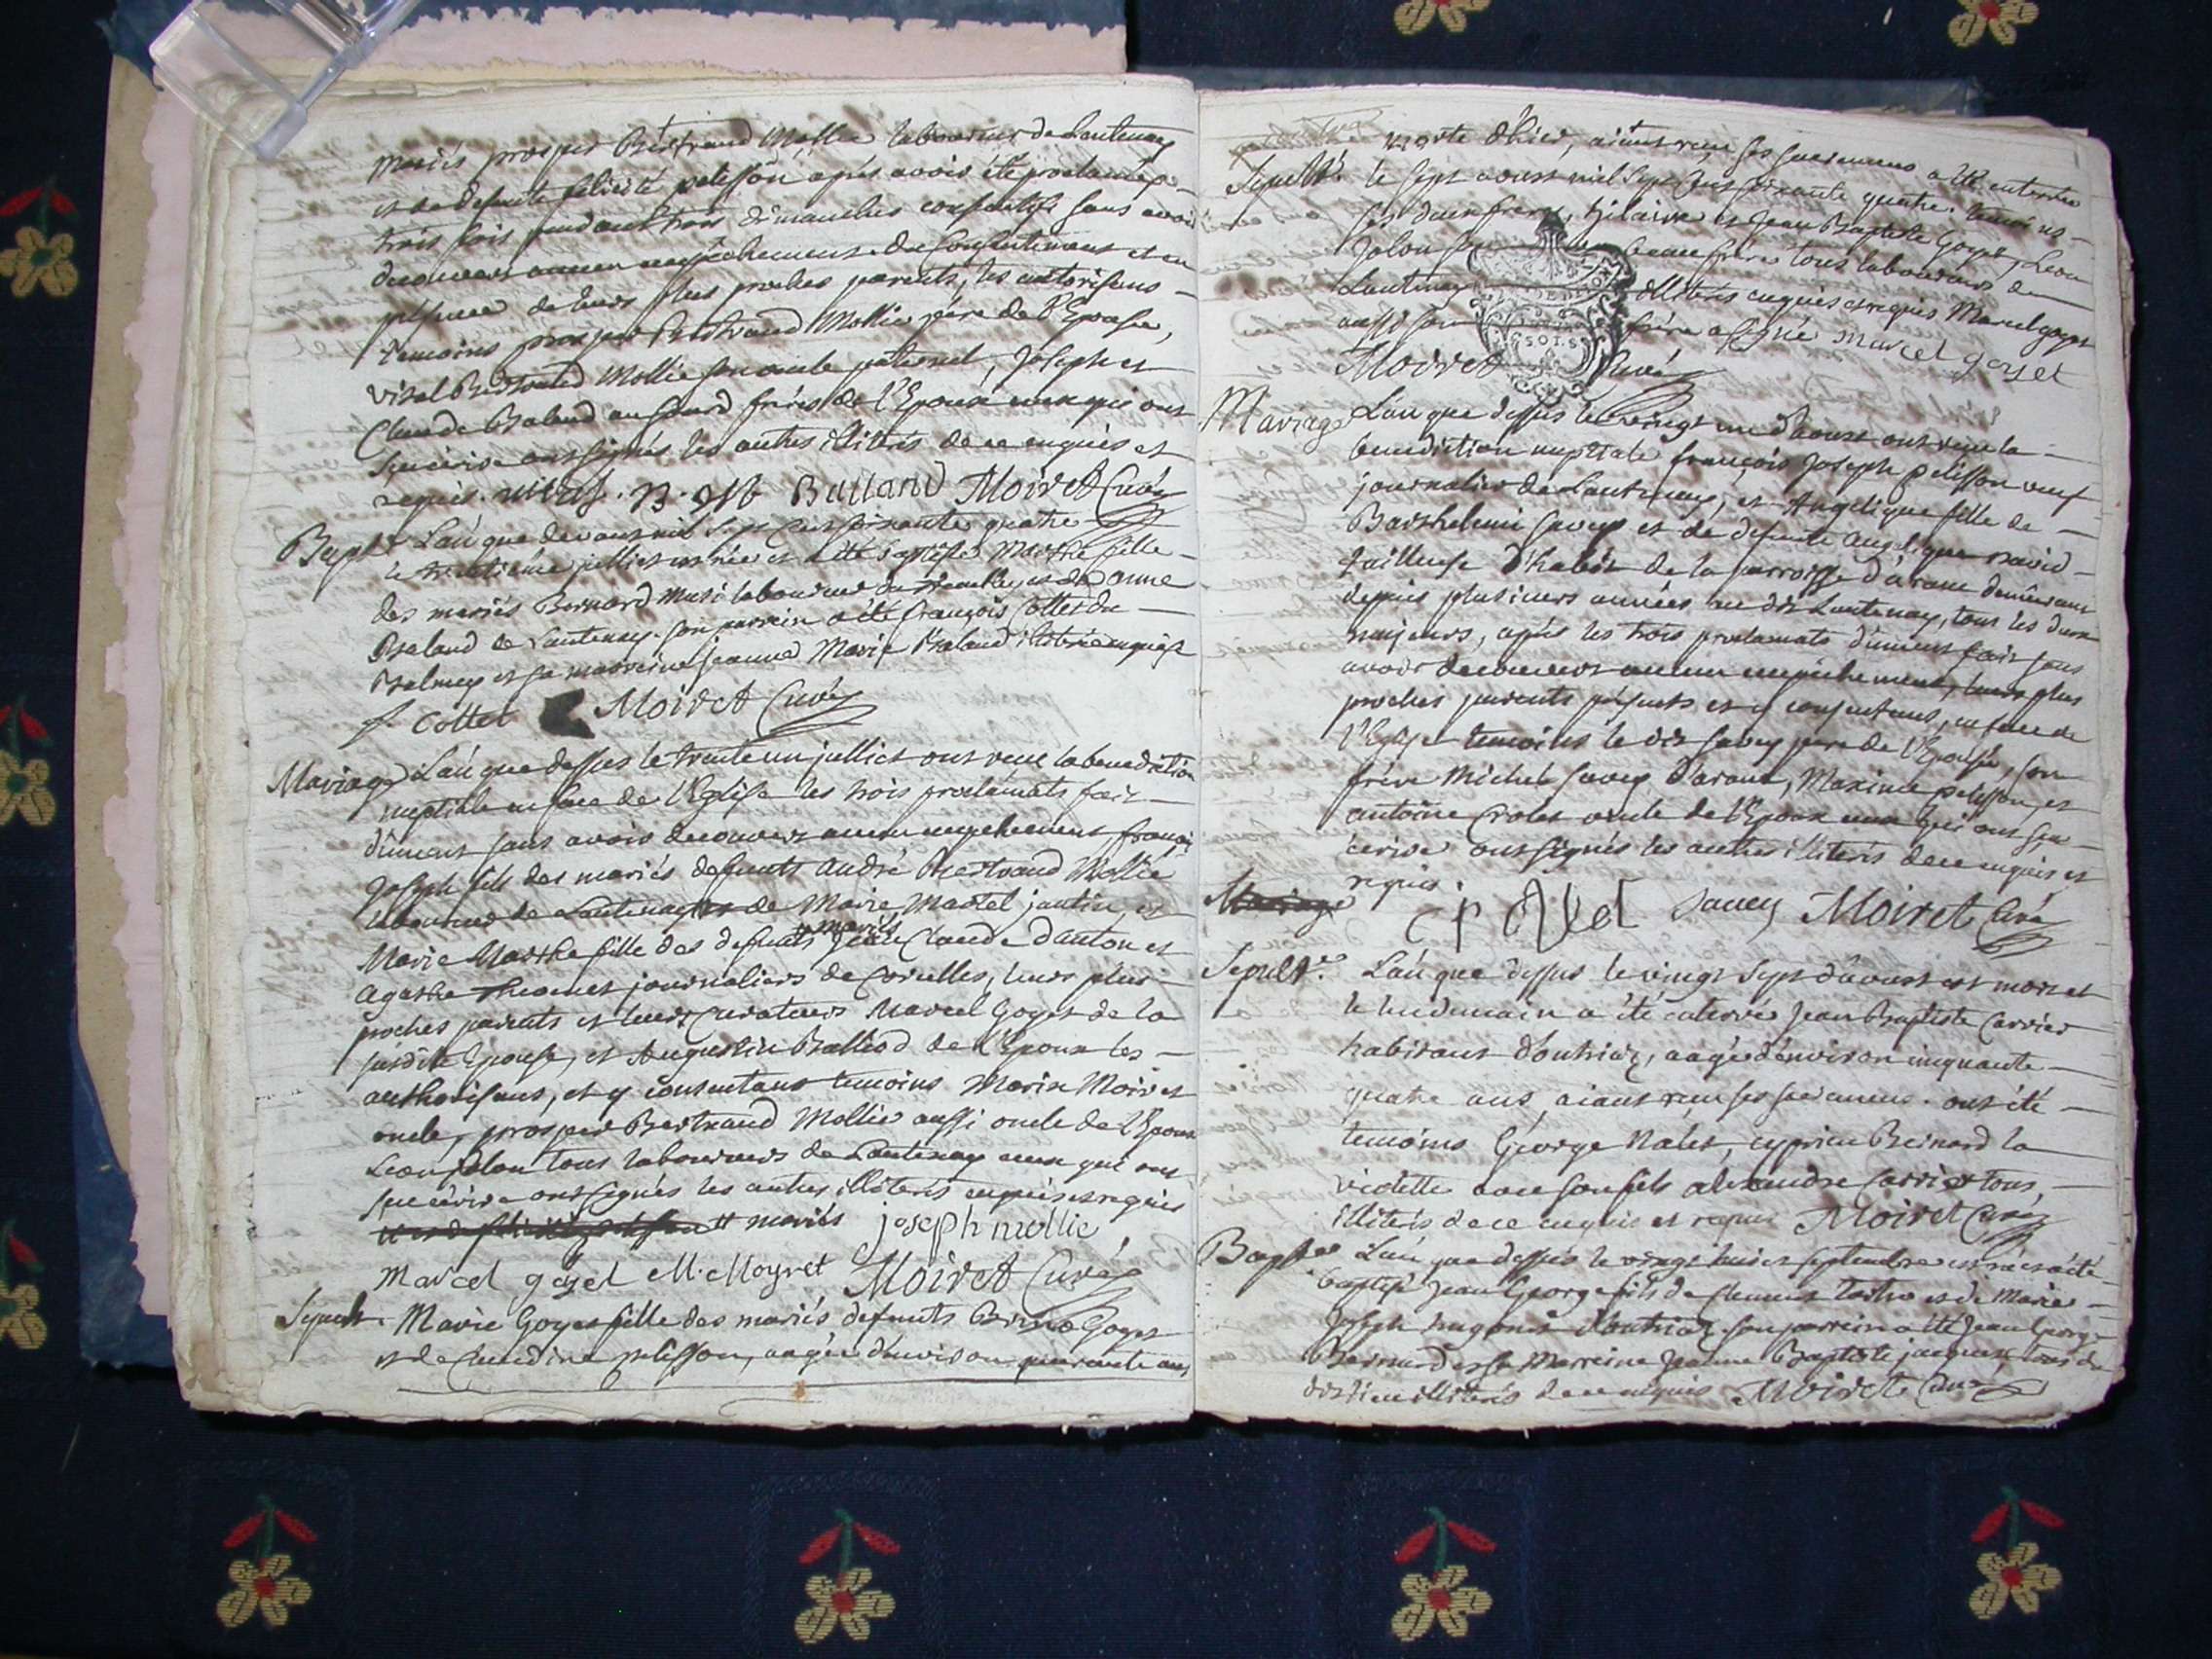 mariés prosper Bertrand Mollie laboureur de Lantenay
et de defunte felicité pelisson, après avoir été proclamés
trois fois pendant trois dimanches consecutifs sans avoir
decouvert aucun empechement du consentement et en
présence de leurs plus proches parents, les autorisans
temoins prosper Bertrand Mollie père de l'Epouse,
vital Bertrand Mollie son oncle paternel, Joseph et
Claude Baland frères de l'Epoux ceux qui ont
sçu écrire ont signés les autres illiterés de ce enquis et
requis. Balland Moiret Curé
Bapt. L'an que devant mil sept cent soixante quatre
le trentième julliet est née et a été baptisée Marthe fille
des mariés Bernard laboureur et de anne
Baland de Lantenay. son parrein a été françois Collet du
Balmey et sa marreine jeanne Marie Baland illiterée enquise
f. Collet Moiret Curé
Mariage L'an que dessus le trente un julliet ont reçu la benediction
nuptiale en face de l'Eglise les trois proclamats fait
dûment sans avoir decouvert aucun empechement, françois
Joseph fils des mariés defunts André Bertrand Mollie
laboureur de Lantenay et de Marie Martel jantin, et
Marie Marthe fille des defunts # mariés Jean Claude Danton et
Agathe Thomet journaliers de Corcelles, leurs plus
proches parents et leurs curateurs Marcel Goyet de la
susdite Epouse, et Augustin Balliod de l'Epoux les
authorisans, et y consentans temoins Marin Moiret
oncle, prosper Bertrand Mollie aussi oncle de l'Epoux
Leon Jolon tous laboureurs de Lantenay ceux qui ont
sçu écrire ont signés les autres illiterés enquis et requis
# mariés joseph mollie
Marcel goyet M. Moyret Moiret Curé
Sepult. Marie Goyet fille des mariés defunts Goyet
et de Claudine pelisson, aagée d'environ quarante ans
morte d'hier, aiant reçu ses sacremens a été enterrée
Sepult.e le sept aoust mil sept cent soixante quatre. temoins
ses deux freres, hilaire et Jean Baptiste Goyet, Leon
Jolon son beau frère tous laboureurs de
Lantenay illiterés enquis et requis Marcel goyet
aussi son frère a signé marcel goyet
Moiret Curé
Mariage L'an que dessus le vingt un d'aoust ont reçu la
benediction nuptiale françois Joseph pelisson veuf
journalier de Lantenay, et Angelique fille de
Barthelemi Savey et de defunte Angelique David
tailleuse d'habit de la parroisse d'aranc demeurant
depuis plusieurs années au dit Lantenay, tous les deux
majeurs, après les trois proclamats dûment fait sans
avoir decouvert aucun empechement, leurs plus
proches parents présents et y consentans, en face de
l'Eglise temoins le dit Savey père de l'Epouse, son
frère Michel Savey d'aranc, Maxime pelisson, et
antoine Crolet oncle de l'Epoux ceux qui ont sçu
écrire ont signés les autres illiterés de ce enquis et
requis.
Savey Moiret Curé
Sepult.e L'an que dessus le vingt sept d'aoust est mort et
le lendemain a été enterré Jean Baptiste Carrier
habitant d'outriaz, aagé d'environ cinquante
quatre ans, aiant reçu ses sacremens. ont été
temoins George Nalet, cyprien Bernard la
violette avec son fils alexandre Carrier tous
illiterés de ce enquis et requis Moiret Curé
Bapt.e L'an que dessus le vingt huit septembre est né et a été
baptisé Jean George fils de Clement et de Marie
Joseph hugonet d'outriaz. son parrein a été Jean George
Bernard et sa Marreine Jeanne Baptiste tous du
dit lieu illiterés de ce enquis Moiret Curé